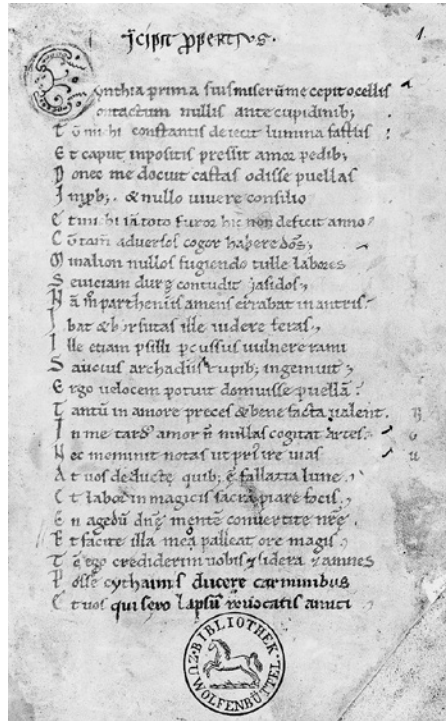 Jcipit ꝓpertius.
1.
Cynthia prima suis miserū me cepit ocellis
contactum nullis ante cupidinib;
Tū mihi constantis deiecit lumina fastus
Et caput inpositis pressit amor pedib;
Donec me docuit castas odisse puellas
Jmprob; & nullo uiuere consilio
Et mihi iā toto furor hic non deficit anno
Cū tam̄ aduersos cogor habere dōs;
Minalion nullos fugiendo tulle labores
Seuiciam durę contudit jasidos,
Nā m̊ partheniis amens errabat in antris
Jbat & hirsutas ille uidere feras,
Jlle etiam psilli pcussus uulnere rami
Saucius archadiis rupib; ingemuit,
Ergo uelocem potuit domuisse puellā
Tantū in amore preces & bene facta ualent.
Jn me tardꝰ amor n̄ nullas cogitat artes
Nec meminit notas ut prꝰ ire uias
At uos deductę quib; ē fallazia lune
Et labor in magicis sacra piare focis,
En agedū dn̄ę mentē conuertite nr̄ę
Et facite illa meo palleat ore magis,
Tc̄ ego crediderim uobis & sidera & amnes
Posse cythainis ducere carminibus
Et uos qui sero lapsū reuocatis amici
BIBLIOTHEK
ZU WOLFENBÜTTEL